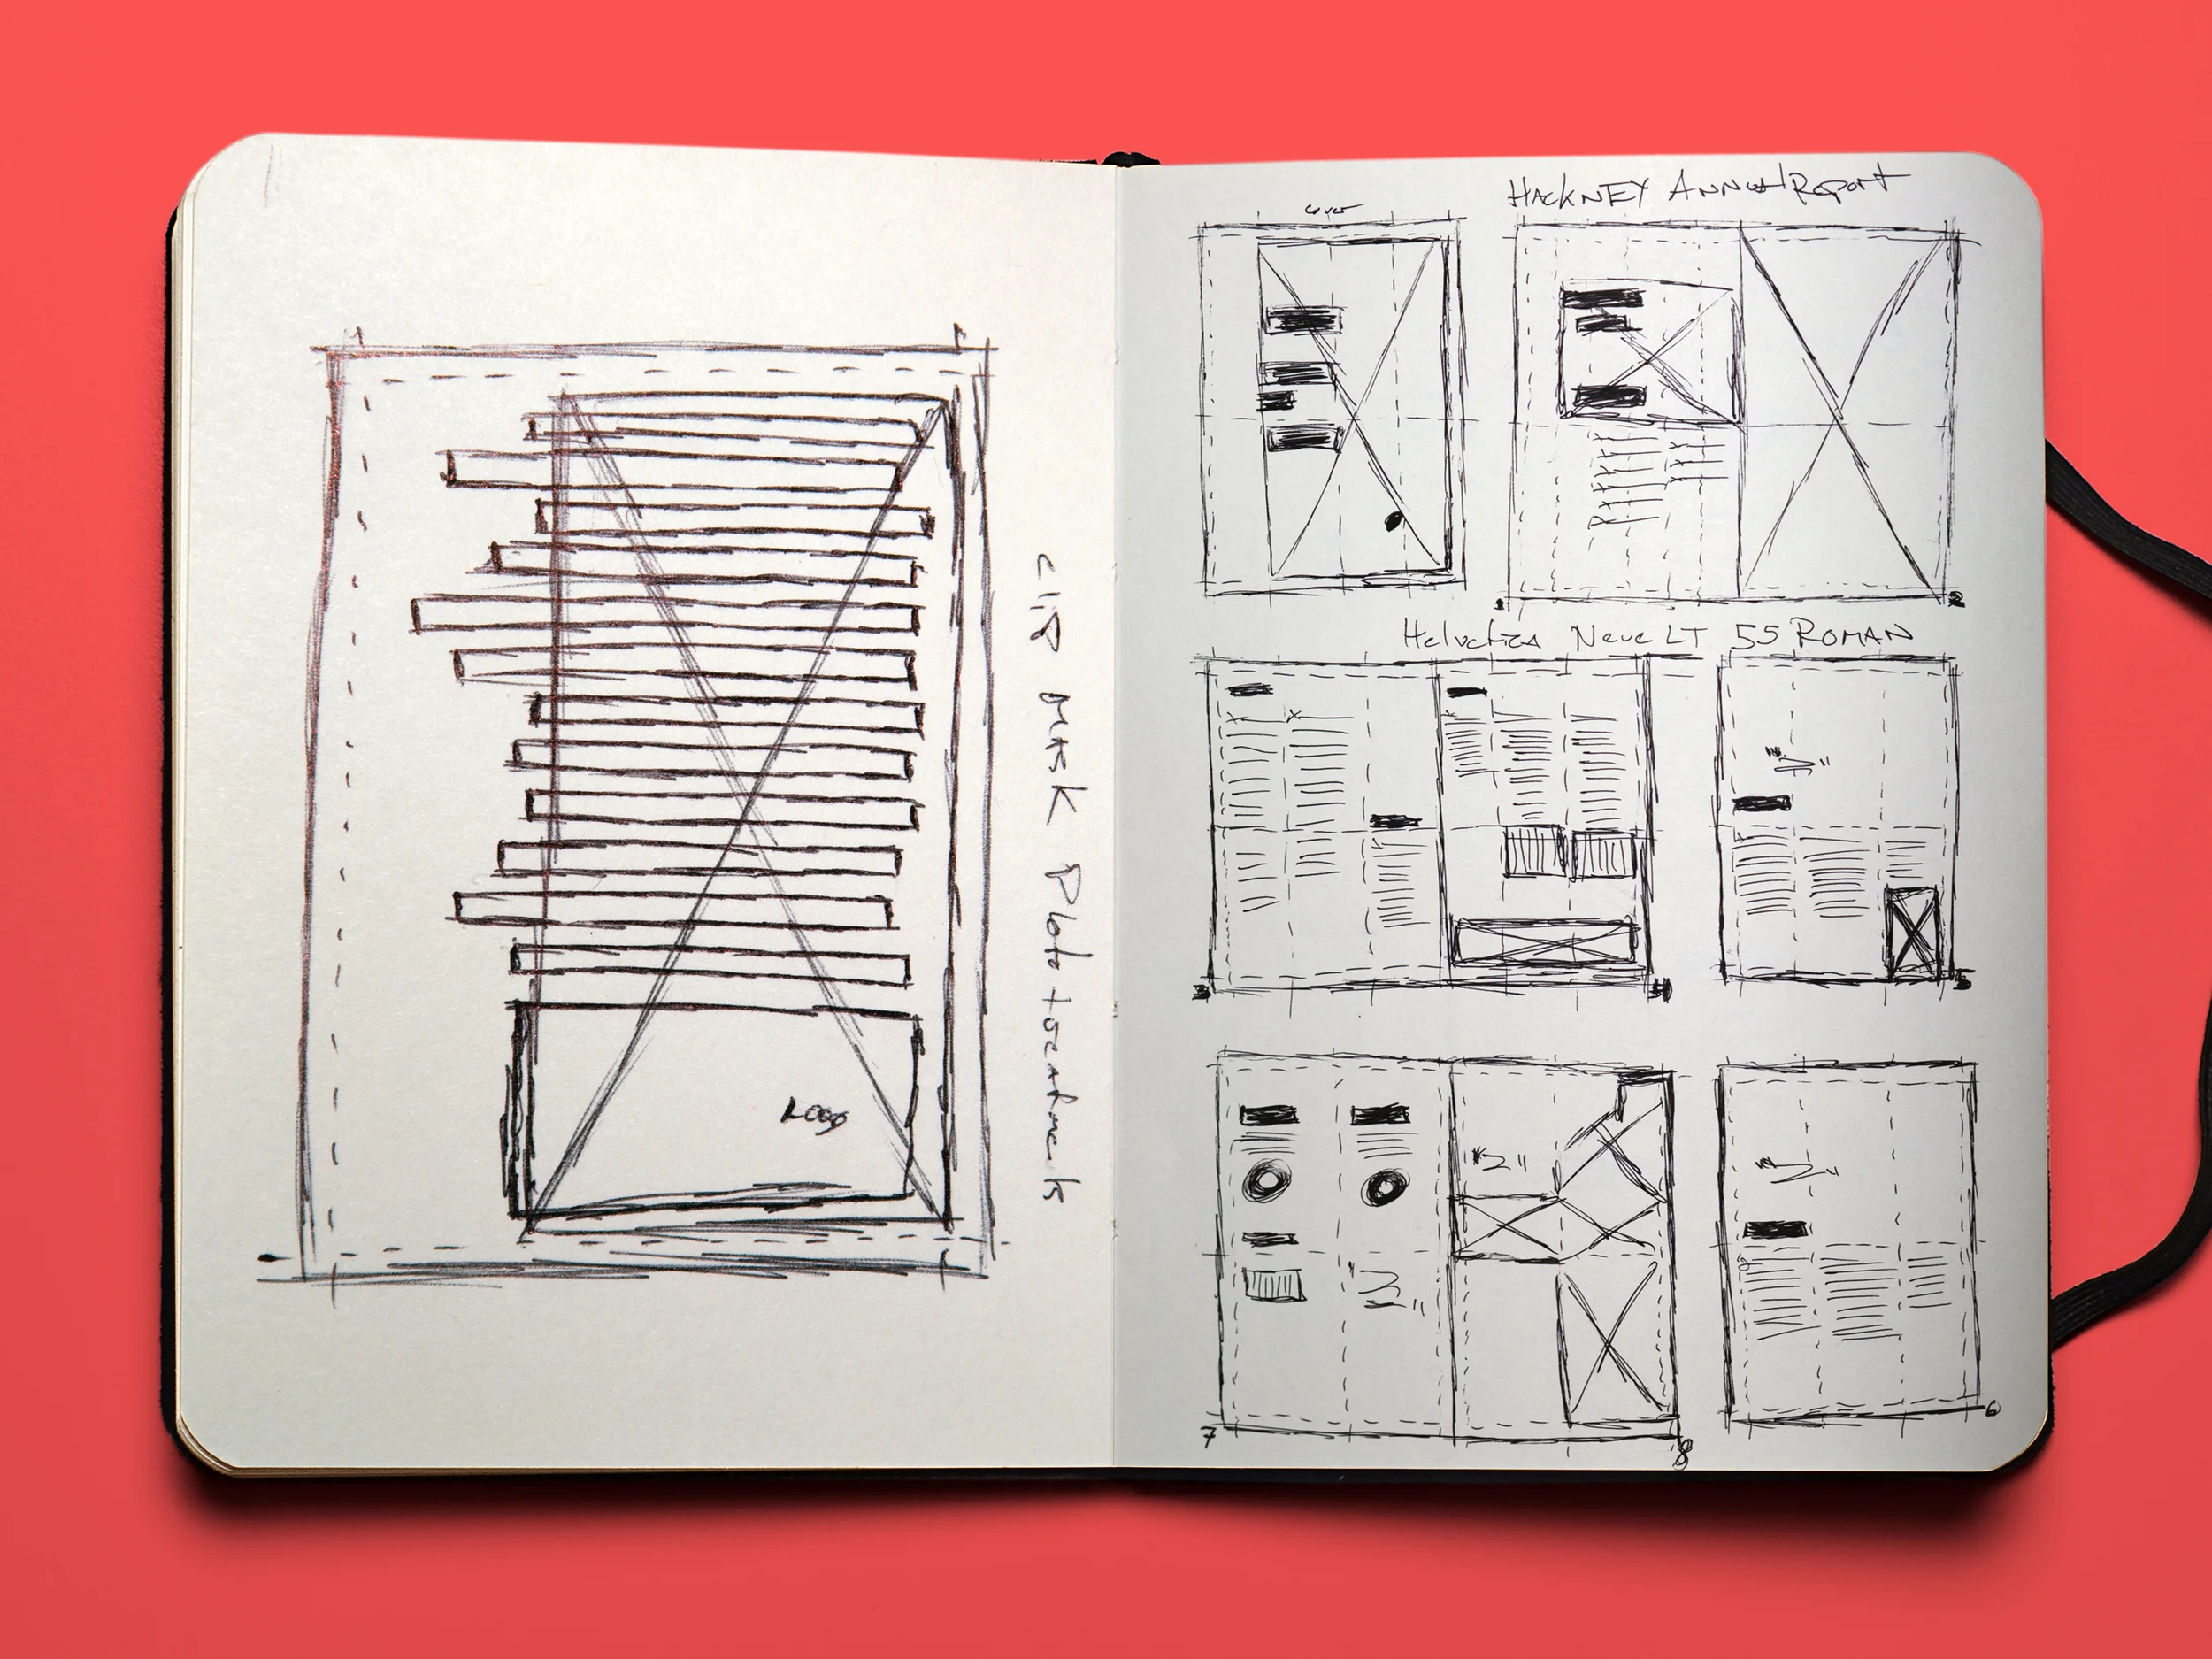 LOGO
CLIP MASK Photo treatment
HACKNEY ANNUAL REPORT
cover
1
2
Helvetica Neue LT 55 ROMAN
3
4
5
7
8
6